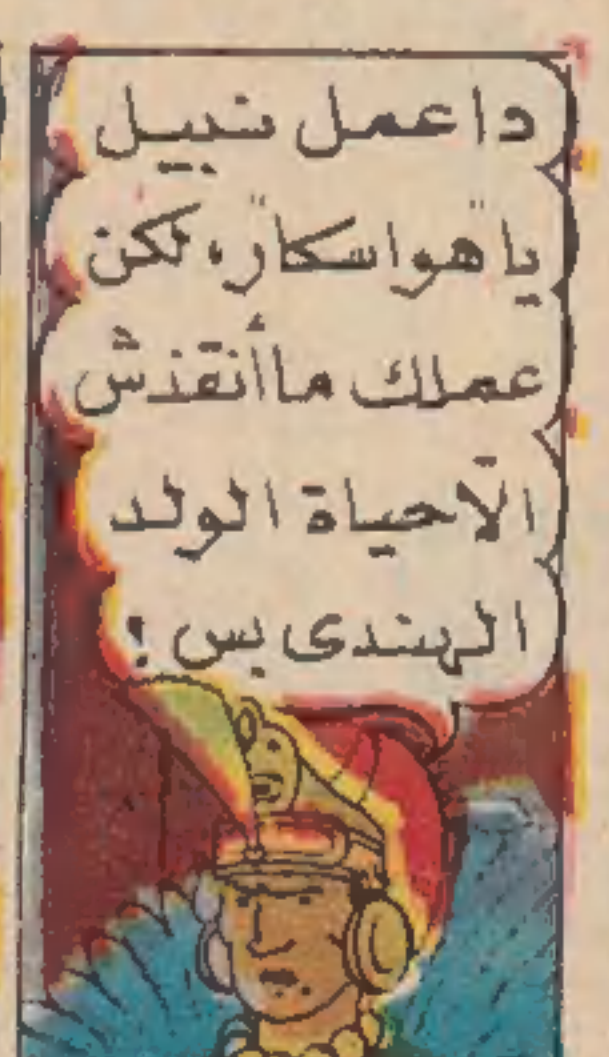 دا عمل نبيل
يا "هواسكار"، لكن
عملك ما أنقذش
الّا حياة الولد
الهندى بس !